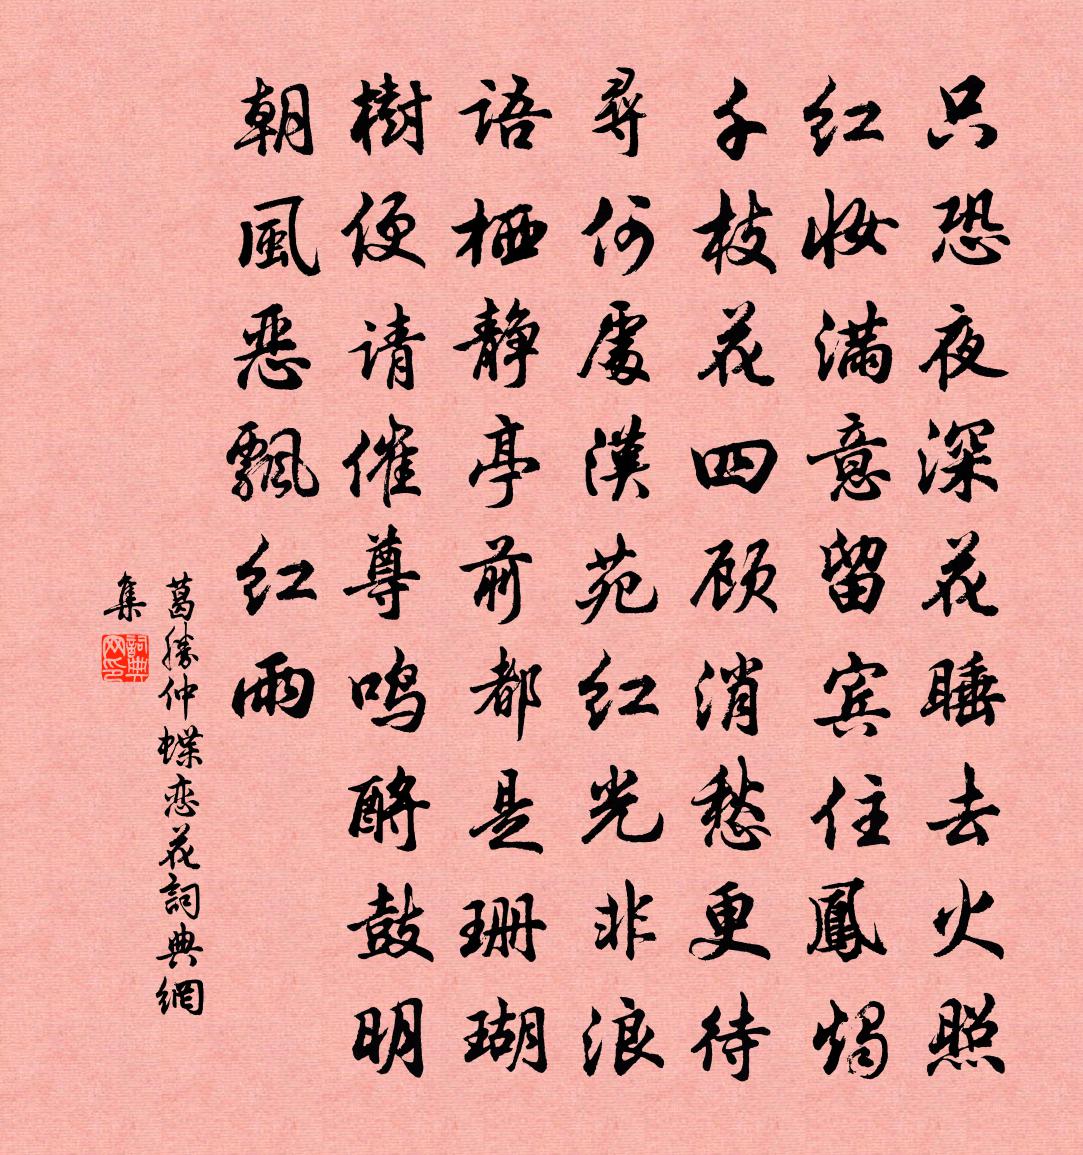 只恐夜深花睡去火照
红妆满意留宾住鳳燭
千枝花四顾消愁更待
尋何處漢苑红光非浪
语栖静亭前都是珊瑚
樹便请催尊鸣酹鼓明
朝風恶飘红雨
葛勝仲蝶恋花詞典網
集
詞典网印